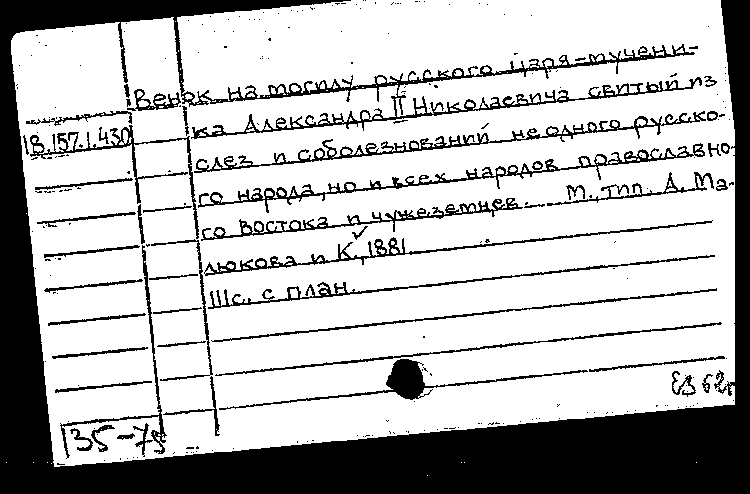 Венок на могилу русского царя-мучени-
18.157.1.430 ка Александра II Николаевича свитый из
слез и соболезнований не одного русско-
го народа, но и всех народов православно-
го Востока и чужеземцев. М., тип. А. Ма-
люкова и К., 1881.
111с. с план.
35-75